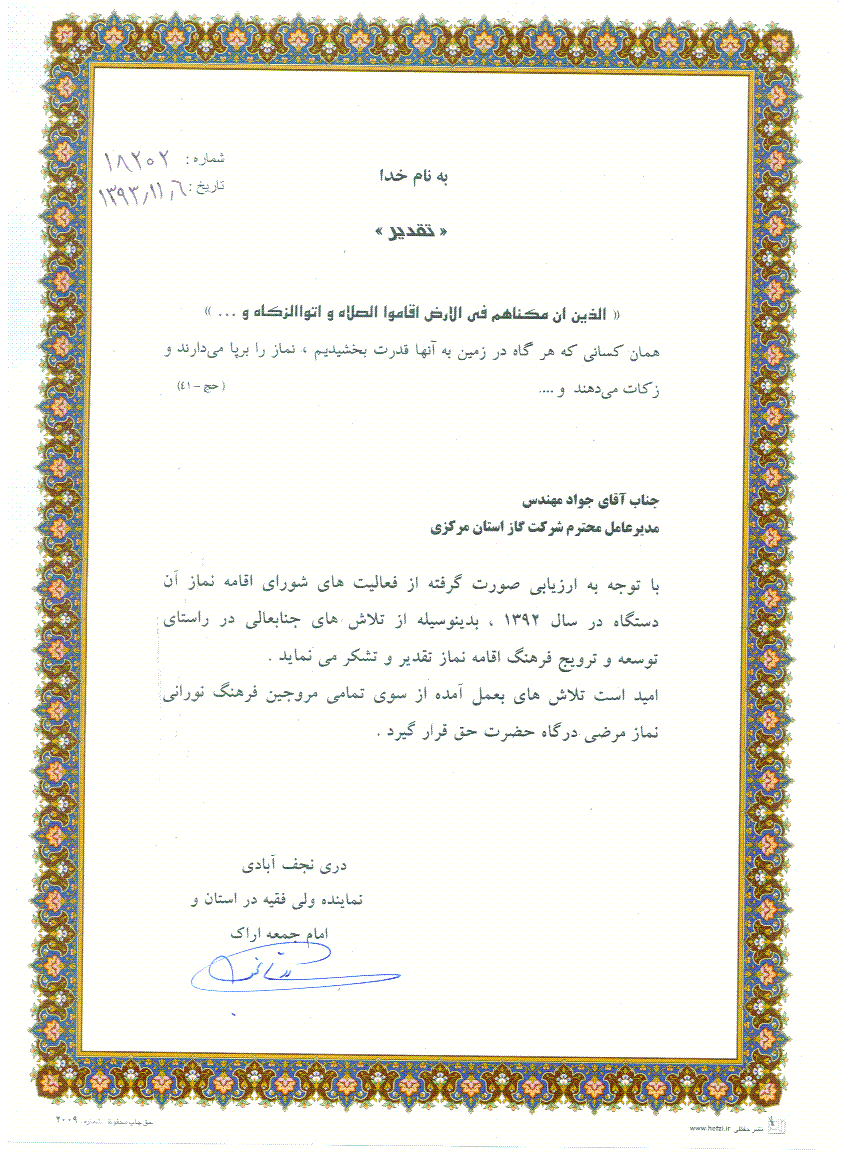 شماره : ۱۸۲۵۲
تاریخ : ۱۳۹۳٫۱۱٫۶
به نام خدا
« تقدیر »
« الذین ان مکناهم فی الارض اقاموا الصلاه و اتواالزکاه و ... »
همان کسانی که هر گاه در زمین به آنها قدرت بخشیدیم ، نماز را برپا می‌دارند و
زکات می‌دهند و .... (حج –٤١)
جناب آقای جواد مهندس
مدیرعامل محترم شرکت گاز استان مرکزی
با توجه به ارزیابی صورت گرفته از فعالیت های شورای اقامه نماز آن
دستگاه در سال ۱۳۹۲ ، بدینوسیله از تلاش های جنابعالی در راستای
توسعه و ترویج فرهنگ اقامه نماز تقدیر و تشکر می نماید .
امید است تلاش های بعمل آمده از سوی تمامی مروجین فرهنگ نورانی
نماز مرضی درگاه حضرت حق قرار گیرد .
دری نجف آبادی
نماینده ولی فقیه در استان و
امام جمعه اراک
نشر حفظی www.hefzi.ir
حق چاپ محفوظ شماره ۲۰۰۹